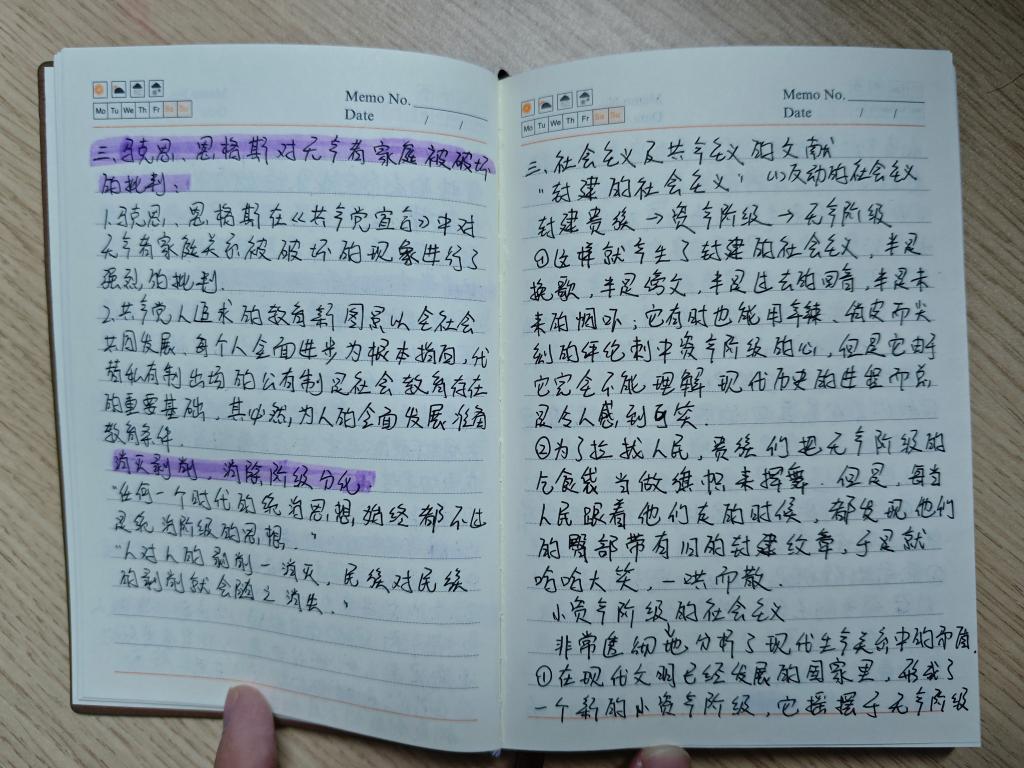 Memo No.
Mo Tu We Th Fr Sa Su
Date / /
三、马克思、恩格斯对无产者家庭被破坏
的批判：
1.马克思、恩格斯在《共产党宣言》中对
无产者家庭关系被破坏的现象进行了
强烈的批判.
2.共产党人追求的教育新图景以全社会
共同发展、每个人全面进步为根本指向，代
替私有制出场的公有制是社会教育存在
的重要基础，其必然，为人的全面发展准备
教育条件.
消灭剥削，消除阶级分化.
"任何一个时代的统治思想，始终都不过
是统治阶级的思想."
"人对人的剥削一消灭，民族对民族
的剥削就会随之消失."
Memo No.
Mo Tu We Th Fr Sa Su
Date / /
三、社会主义及共产主义的文献
"封建的社会主义" (1)反动的社会主义
封建贵族→资产阶级→无产阶级
①这样就产生了封建的社会主义，半是
挽歌，半是谤文，半是过去的回音，半是未
来的恫吓；它有时也能用辛辣、俏皮而尖
刻的评论刺中资产阶级的心，但是它由于
它完全不能理解现代历史的进程而总
是令人感到可笑.
②为了拉拢人民，贵族们把无产阶级的
乞食袋当做旗帜来挥舞.但是，每当
人民跟着他们走的时候，都发现他们
的臀部带有旧的封建纹章，于是就
哈哈大笑，一哄而散.
小资产阶级的社会主义
非常透彻地分析了现代生产关系中的矛盾.
①在现代文明已经发展的国家里，形成了
一个新的小资产阶级，它摇摆于无产阶级